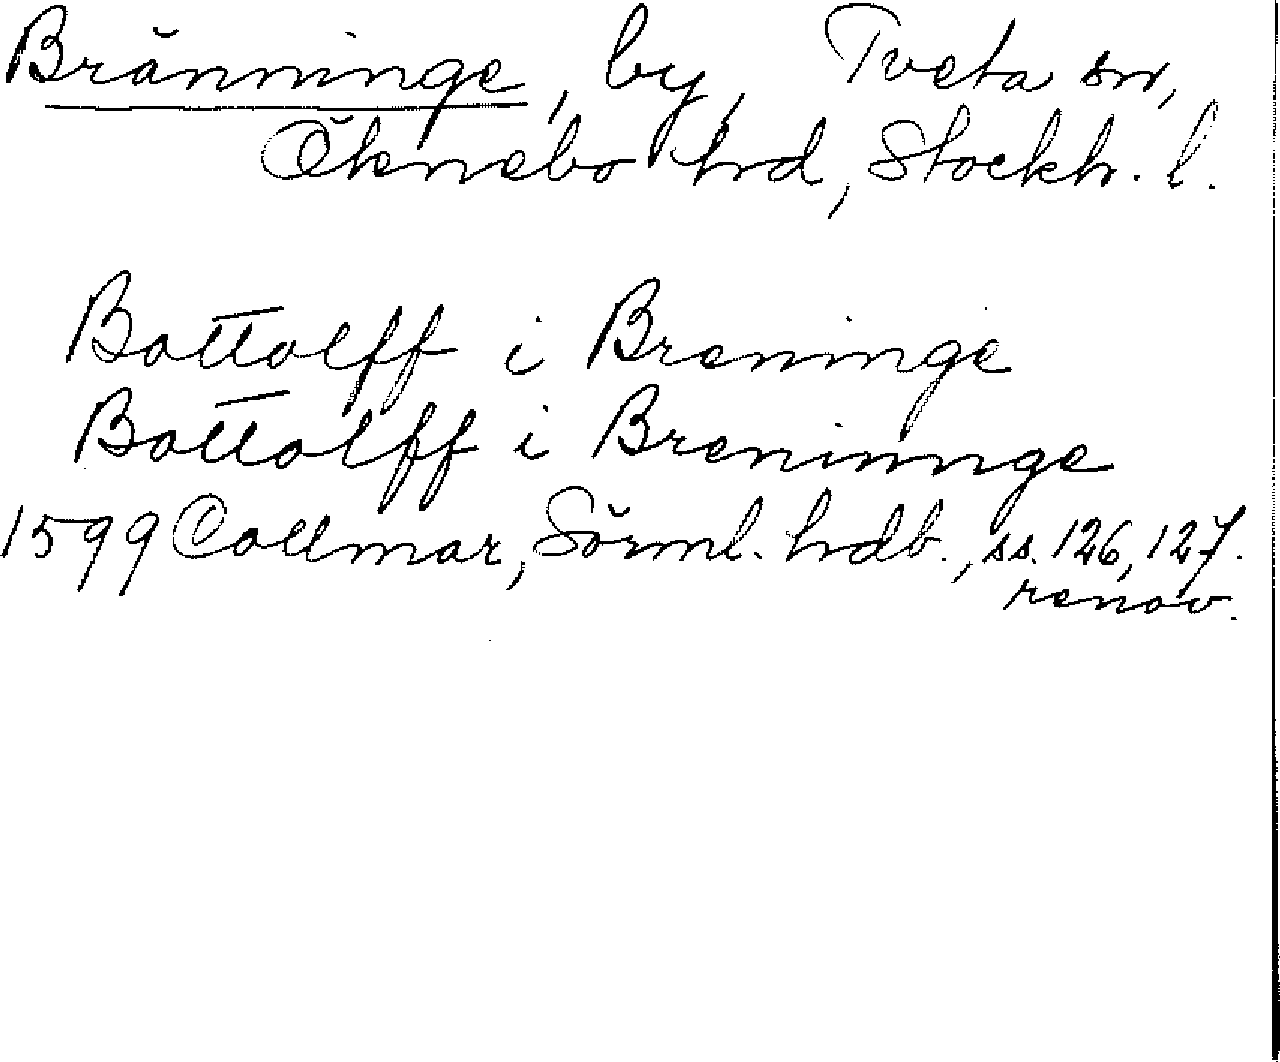 Bränninge, by, Tveta sn,
Öknebo hrd, Stockh. l.
Bottolff i Breninge
Bottolff i Breninnge
1599 Collmar, Sörml. hrdb., ss. 126, 127.
renov.